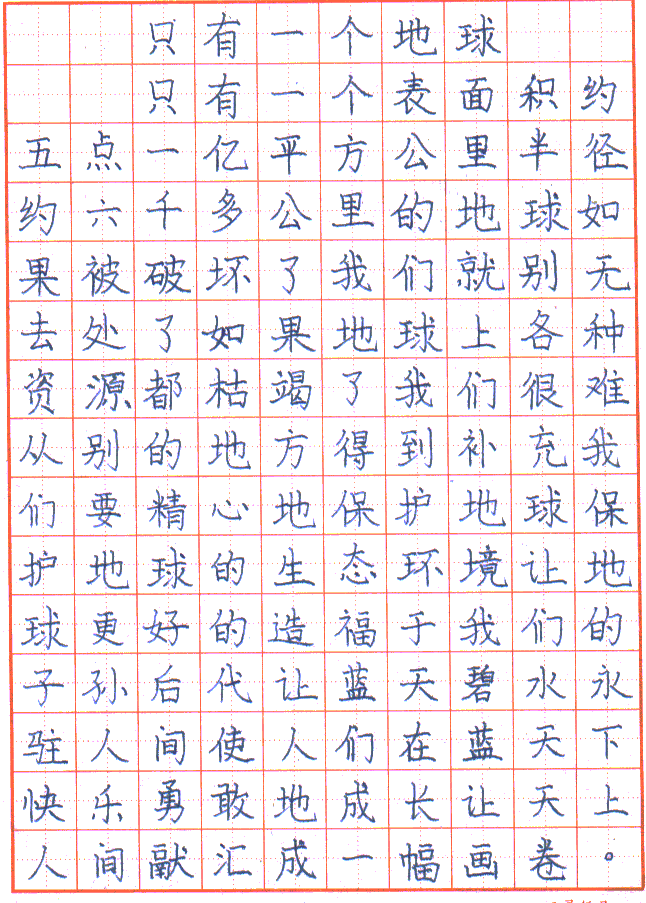 只有一个地球
只有一个表面积约
五点一亿平方公里半径
约六千多公里的地球如
果被破坏了我们就别无
去处了如果地球上各种
资源都枯竭了我们很难
从别的地方得到补充我
们要精心地保护地球保
护地球的生态环境让地
球更好的造福于我们的
子孙后代让蓝天碧水永
驻人间使人们在蓝天下
快乐勇敢地成长让天上
人间汇成一幅画卷。